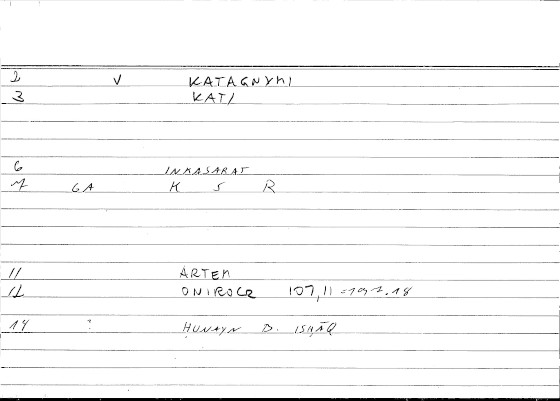 2 V KATAGNYMI
3 KATI
6 INKASARAT
7 6A K S R
11 ARTEM
12 ONIROCR 107,11 = 197.18
14 : ḤUNAYN B. ISḤĀQ